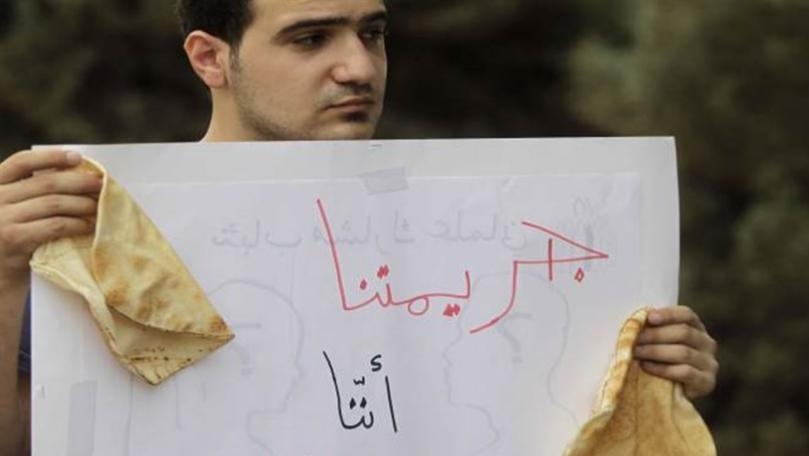 جريمتنا
أنّنا